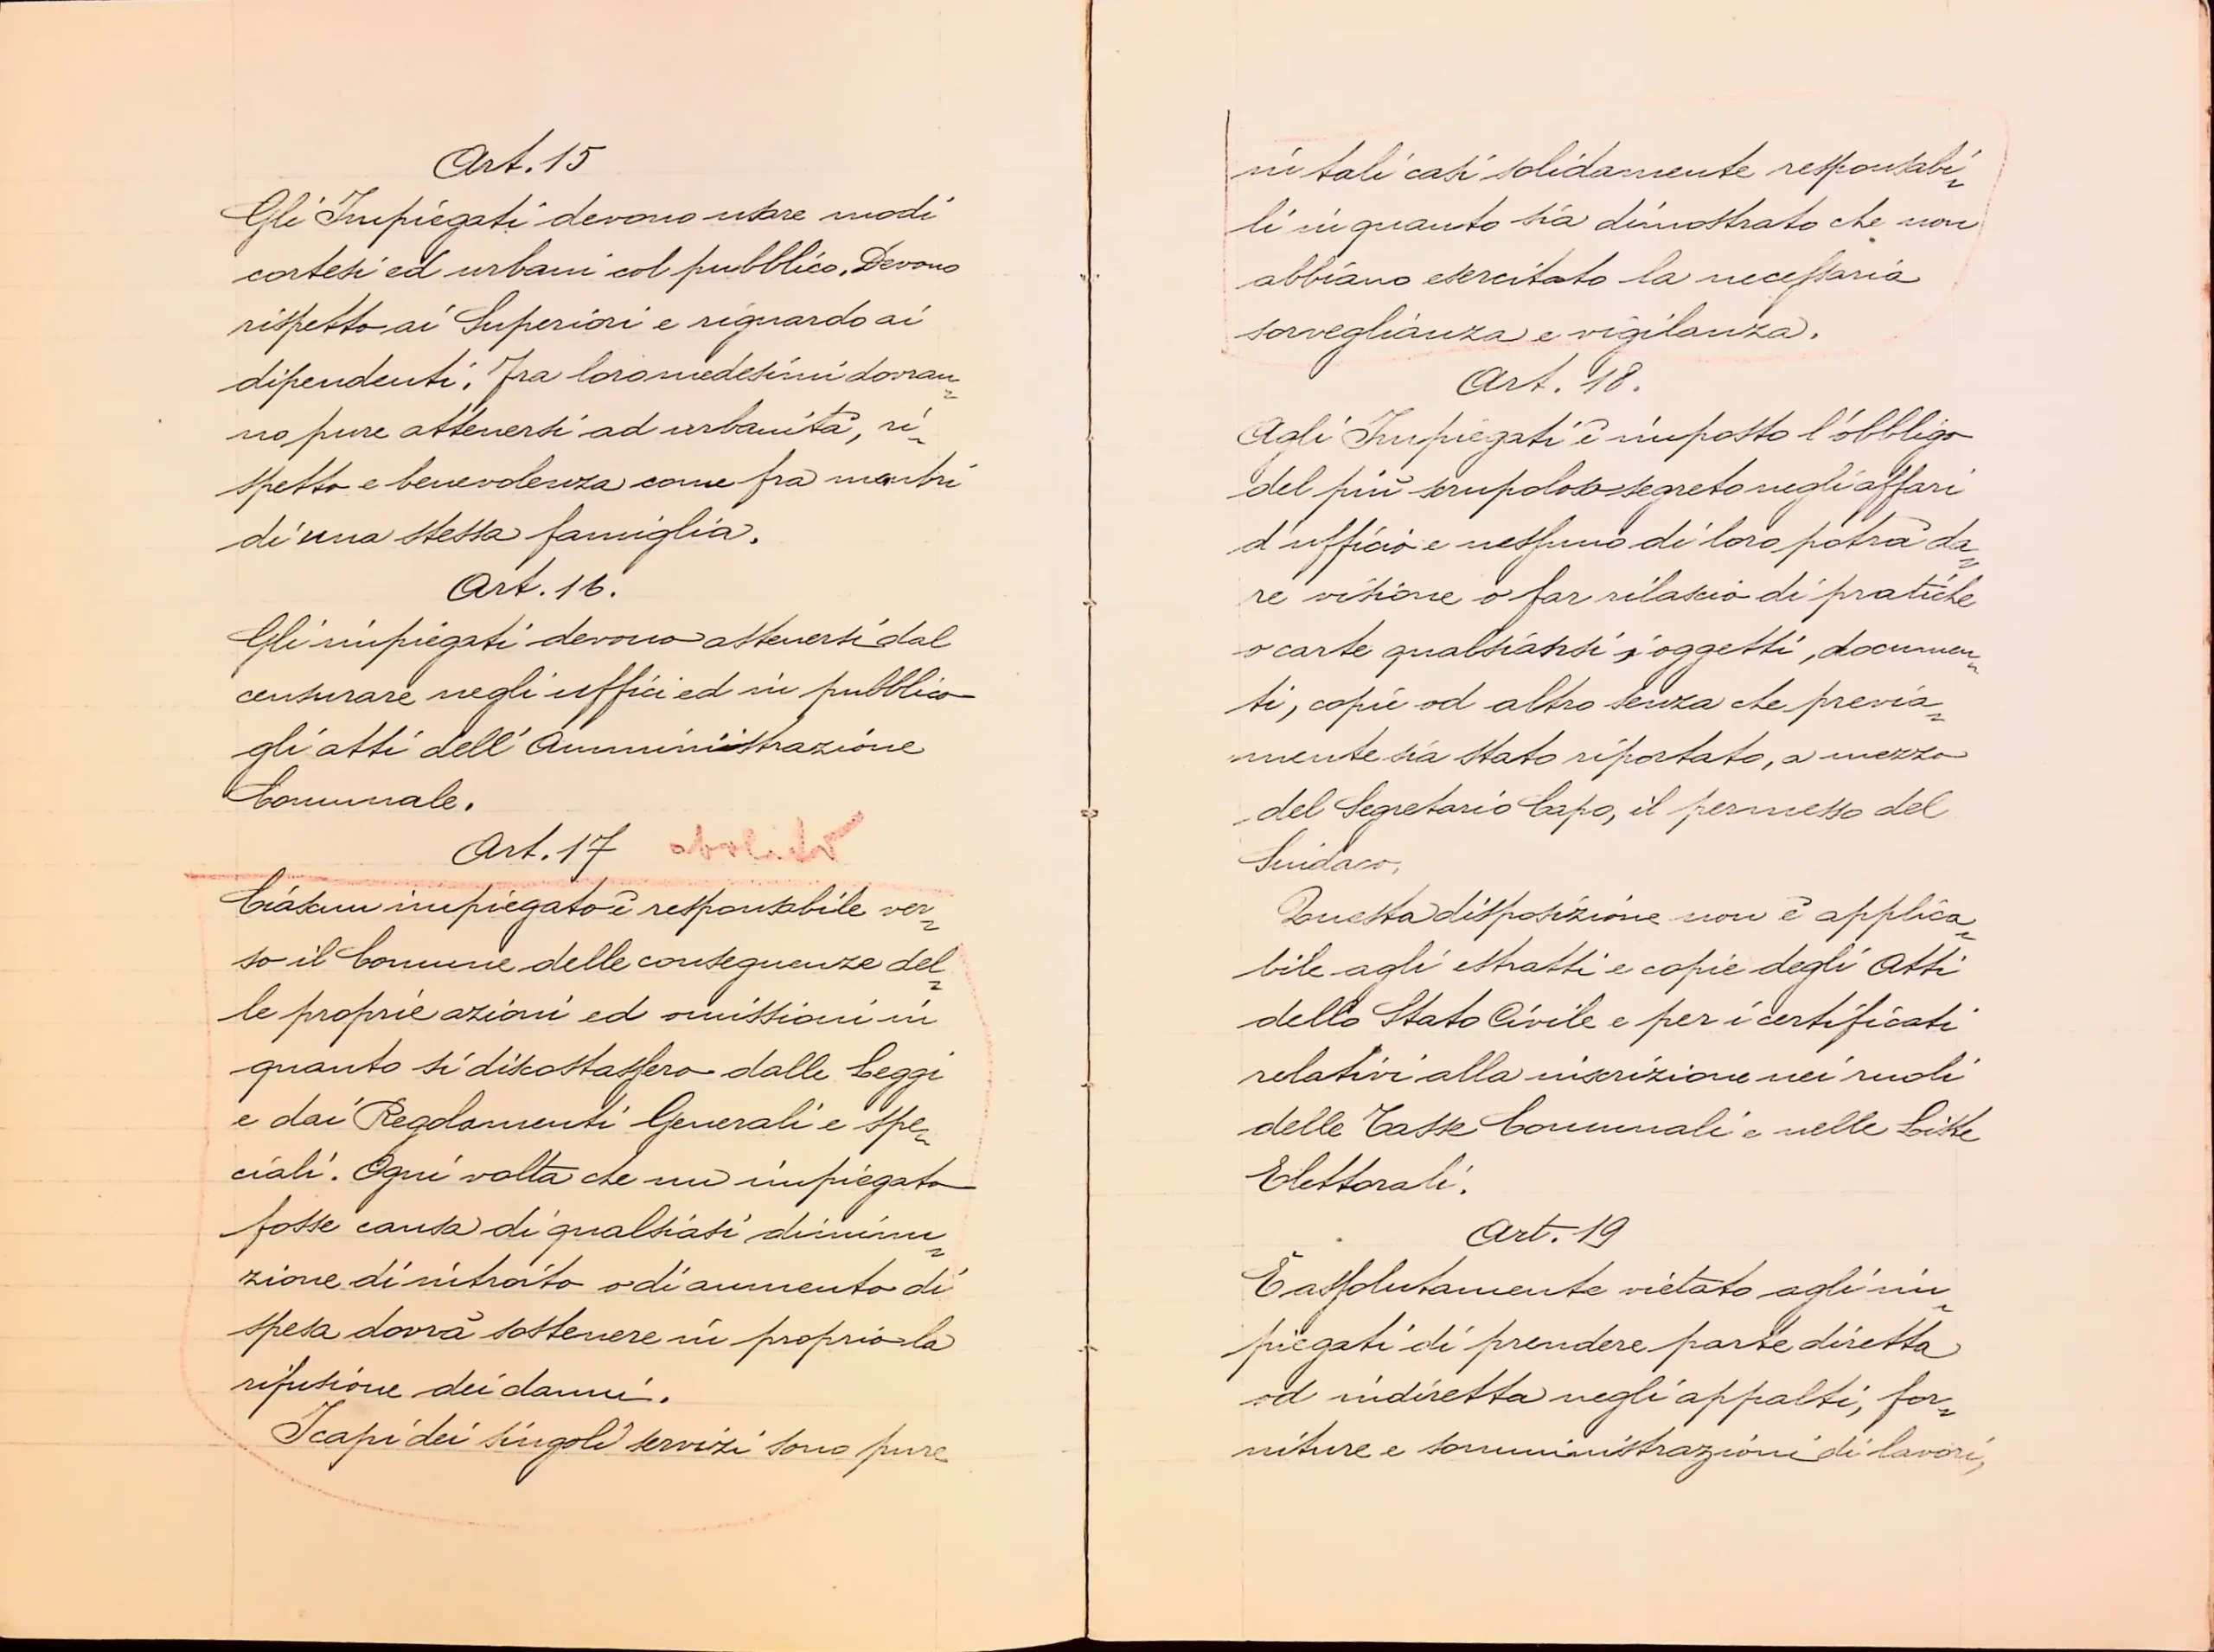 Art. 15
Gli Impiegati devono usare modi
cortesi ed urbani col pubblico. Devono
rispetto ai Superiori e riguardo ai
dipendenti. Fra loro medesimi dovran=
no pure attenersi ad urbanità, ri=
spetto e benevolenza come fra membri
di una stessa famiglia.
Art. 16.
Gli impiegati devono astenersi dal
censurare negli uffici ed in pubblico
gli atti dell'Amministrazione
Comunale.
Art. 17
Ciascun impiegato è responsabile ver=
so il Comune delle conseguenze del=
le proprie azioni ed omissioni in
quanto si discostassero dalle Leggi
e dai Regolamenti Generali e spe=
ciali. Ogni volta che un impiegato
fosse causa di qualsiasi diminu=
zione di introito o di aumento di
spesa dovrà sostenere in proprio la
rifusione dei danni.
I capi dei singoli servizi sono pure
in tali casi solidamente responsabi=
li in quanto sia dimostrato che non
abbiano esercitato la necessaria
sorveglianza e vigilanza.
Art. 18.
Agli Impiegati è imposto l'obbligo
del più scrupoloso segreto negli affari
d'ufficio e nessuno di loro potrà da=
re visione o far rilascio di pratiche
o carte qualsiansi, oggetti, documen=
ti, copie od altro senza che previa=
mente sia stato riportato, a mezzo
del Segretario Capo, il permesso del
Sindaco.
Questa disposizione non è applica=
bile agli estratti e copie degli Atti
dello Stato Civile e per i certificati
relativi alla inscrizione nei ruoli
delle Tasse Comunali e nelle Liste
Elettorali.
Art. 19
È assolutamente vietato agli im=
piegati di prendere parte diretta
od indiretta negli appalti, for=
niture e somministrazioni di lavori,